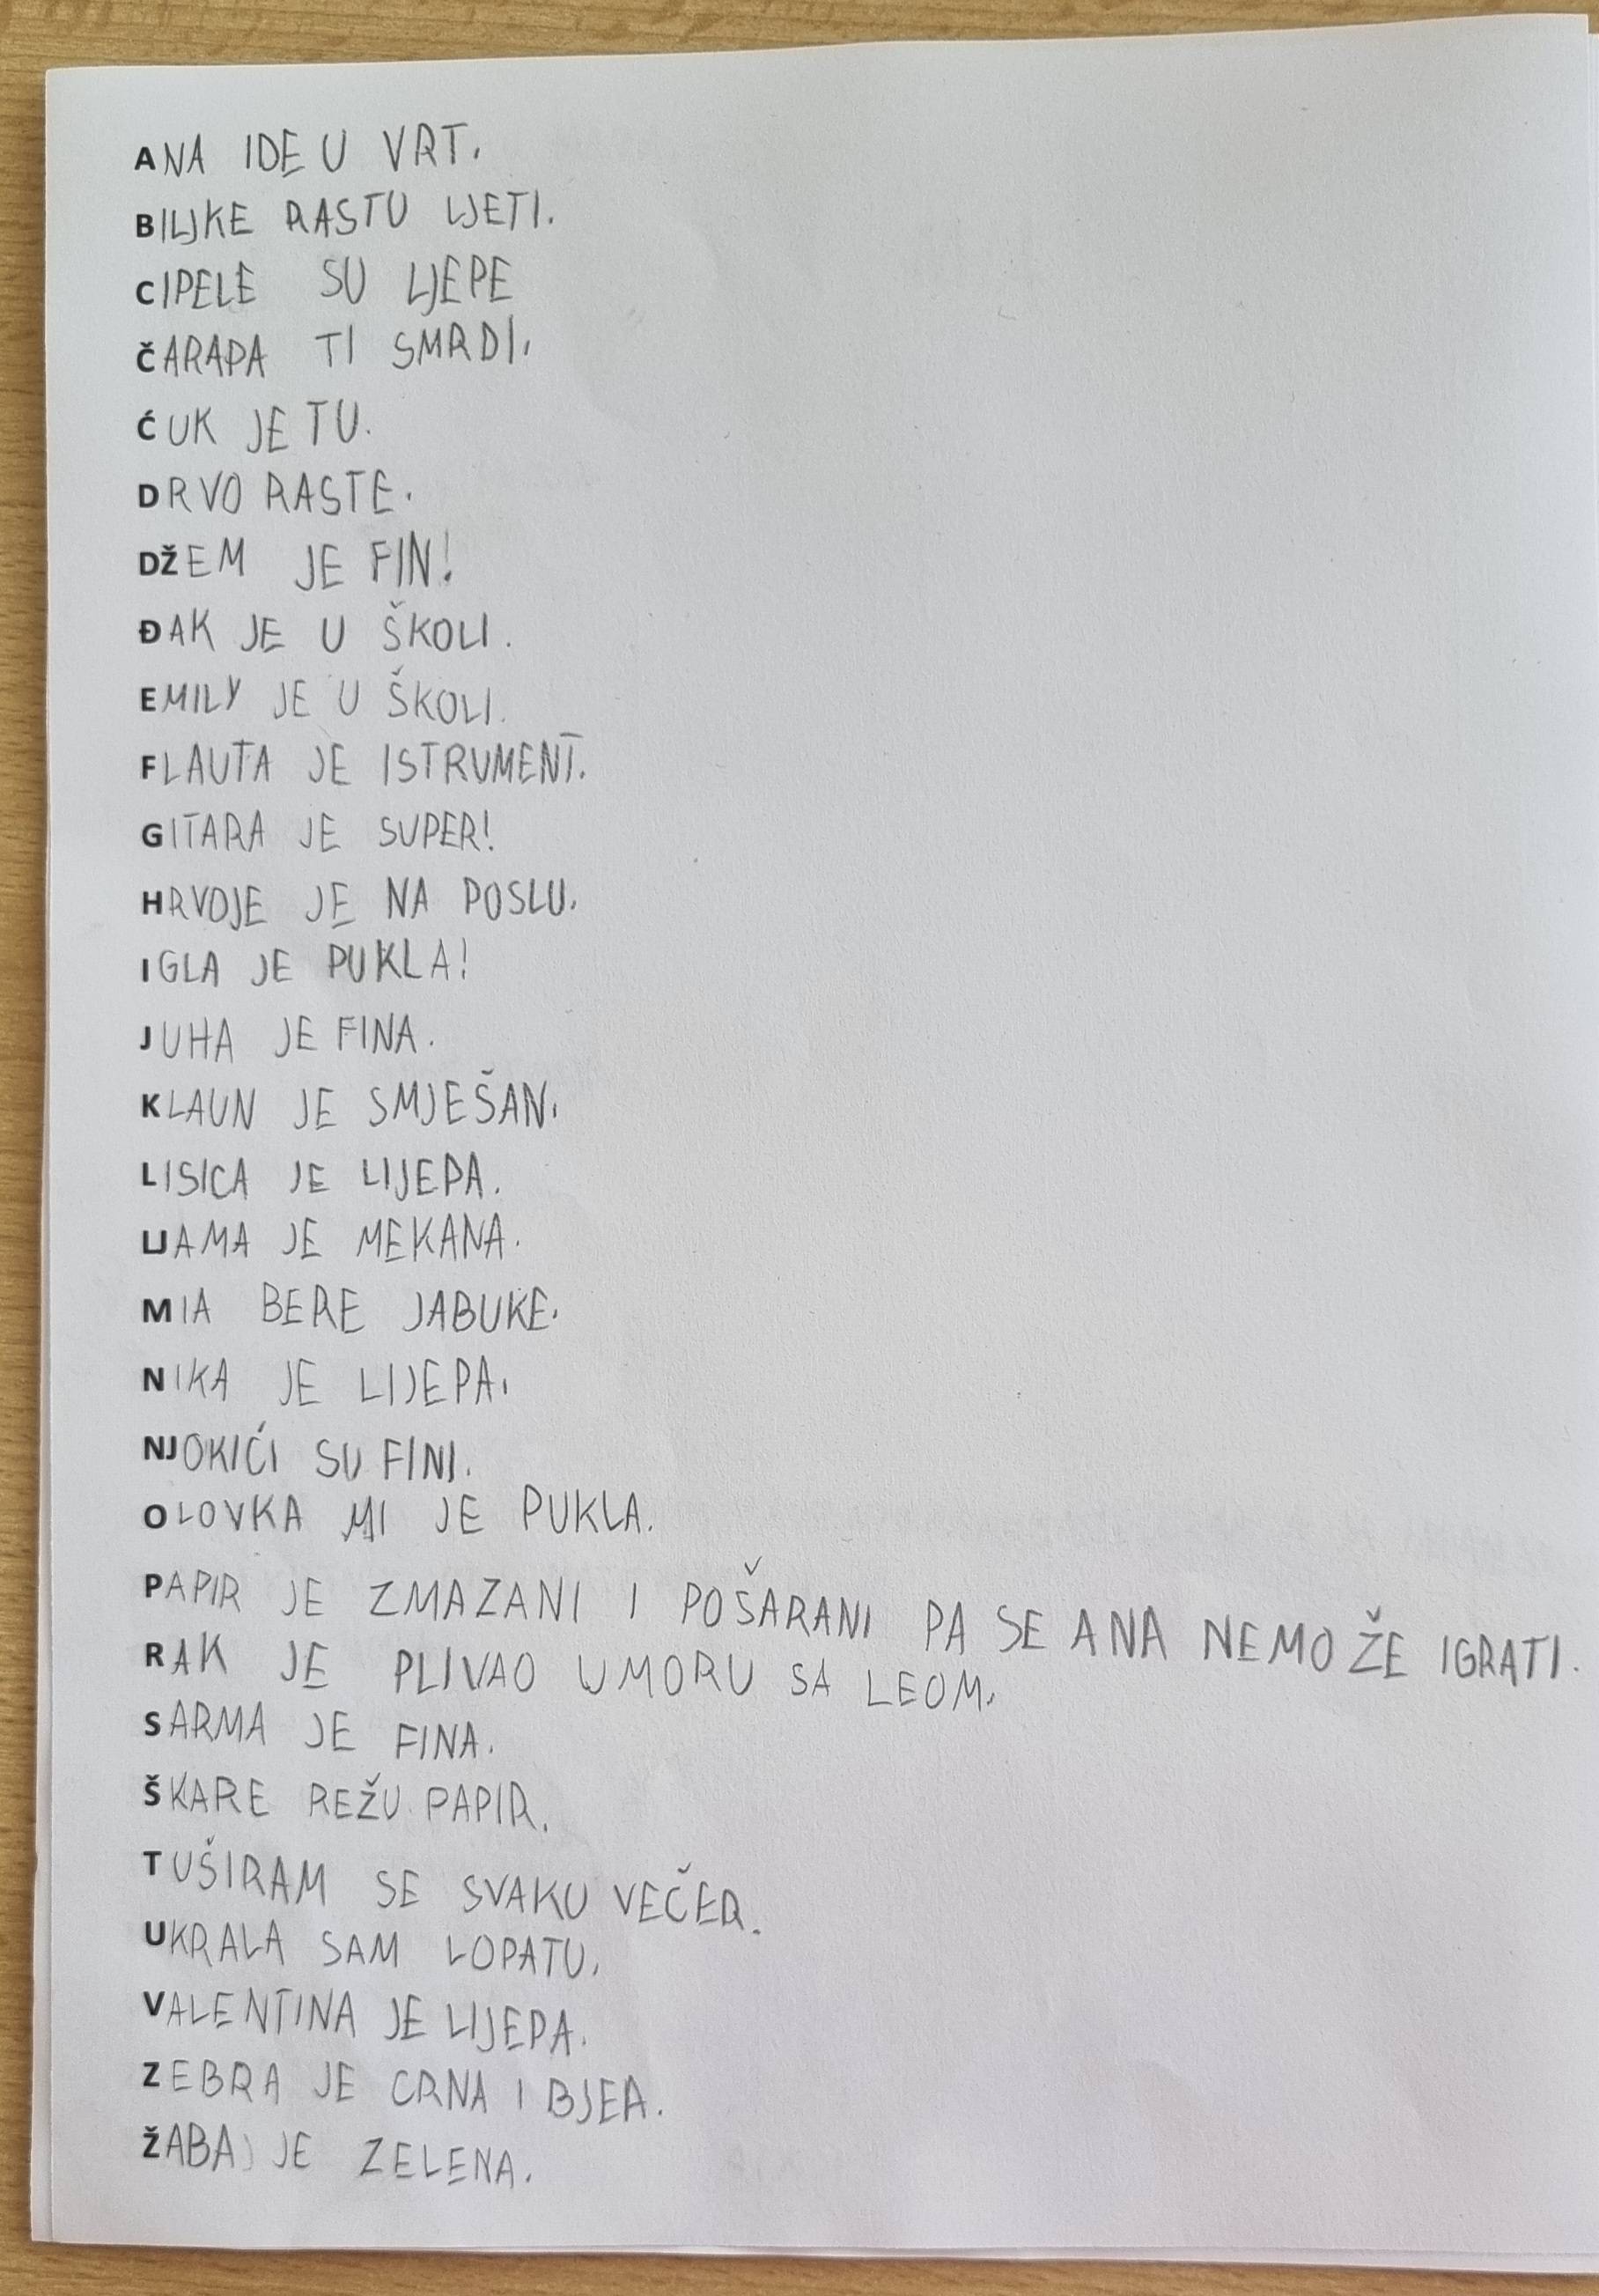 ANA IDE U VRT.
BILJKE RASTU LJETI.
CIPELE SU LJEPE
ČARAPA TI SMRDI.
ĆUK JE TU.
DRVO RASTE.
DŽEM JE FIN!
ĐAK JE U ŠKOLI.
EMILY JE U ŠKOLI.
FLAUTA JE ISTRUMENT.
GITARA JE SUPER!
HRVOJE JE NA POSLU.
IGLA JE PUKLA!
JUHA JE FINA.
KLAUN JE SMJEŠAN.
LISICA JE LIJEPA.
LJAMA JE MEKANA.
MIA BERE JABUKE.
NIKA JE LIJEPA.
NJOKIĆI SU FINI.
OLOVKA MI JE PUKLA.
PAPIR JE ZMAZANI I POŠARANI PA SE ANA NEMOŽE IGRATI.
RAK JE PLIVAO UMORU SA LEOM.
SARMA JE FINA.
ŠKARE REŽU PAPIR.
TUŠIRAM SE SVAKU VEČER.
UKRALA SAM LOPATU.
VALENTINA JE LIJEPA.
ZEBRA JE CRNA I BJEA.
ŽABA JE ZELENA.